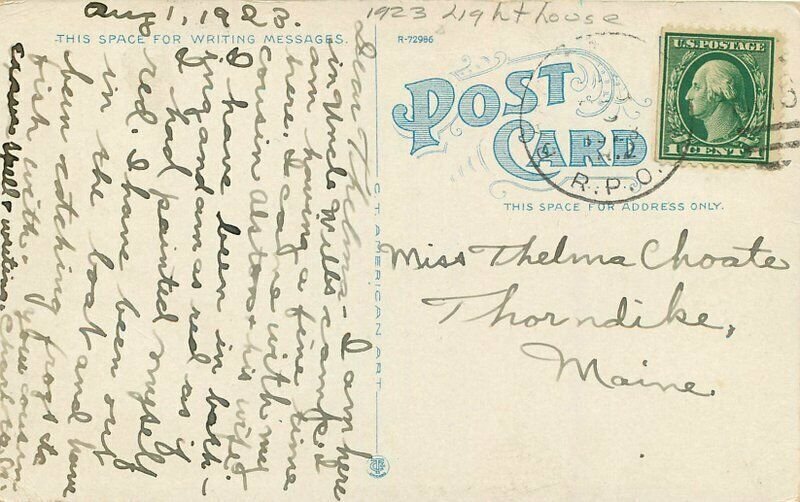 Aug 1, 1923.
1923 Lighthouse
THIS SPACE FOR WRITING MESSAGES.
R-72986
POST
CARD
U.S. POSTAGE
1 CENT 1
R.P.O.
THIS SPACE FOR ADDRESS ONLY.
C.T. AMERICAN ART
Dear Thelma - I am here
in Uncle Will's camp. I
am having a fine time
here. I came with my
cousin Alston & his wife
I have been in bath-
ing and am as red as if
I had painted myself
red. I have been out
in the boat and have
been catching frogs to
fish with. your cousin
Miss Thelma Choate
Thorndike,
Maine.